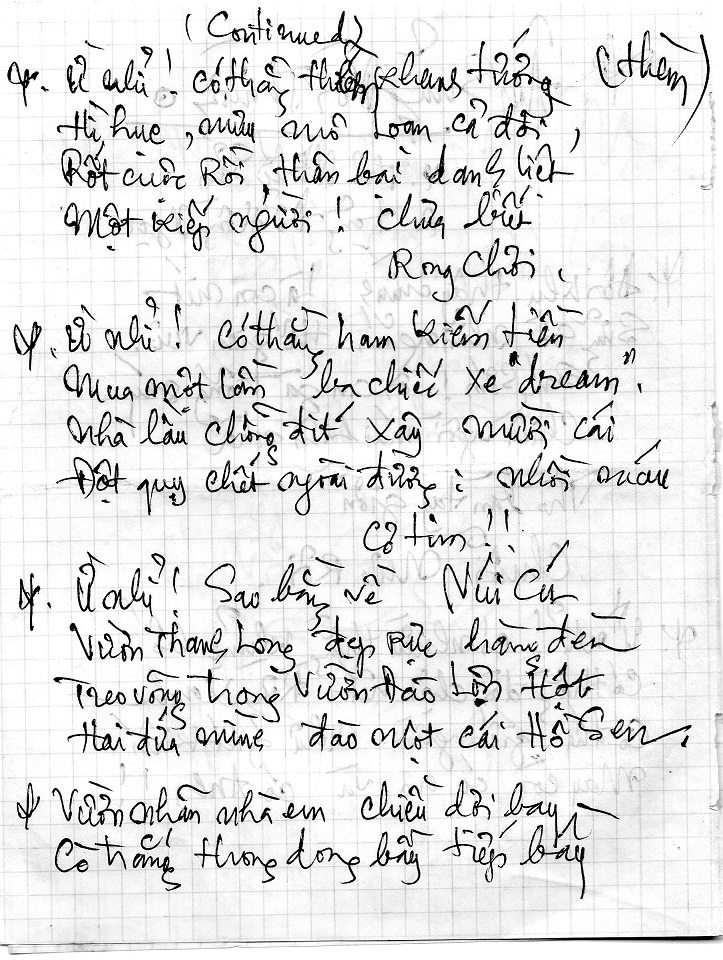 (Continued)
Ừ nhỉ! có thằng thèm khanh tướng (thèm)
Hì hục, mưu mô toan cả đời,
Rốt cuộc rồi, thân bại danh liệt
Một kiếp người! chưa biết
Rong chơi.
Ừ nhỉ! Có thằng ham kiếm tiền
Mua một lần ba chiếc xe "dream".
Nhà lầu chồng đít xây mười cái
Đột quỵ chết ngoài đường: nhồi máu
cơ tim!!
Ừ nhỉ! Sao bằng về Núi Cú
Vườn Thanh Long đẹp rực hàng đèn
Treo võng trong Vườn Đào Lộn Hột
Hai đứa mình đào một cái Hồ Sen.
Vườn nhãn nhà em chiều dơi bay
Cò trắng thong dong bầy tiếp bầy